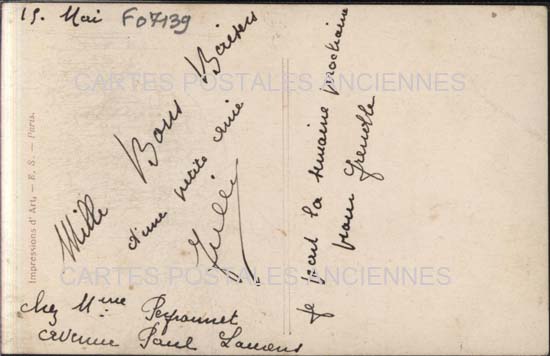 15. Mai F07139
Mille Bons Baisers
d'une petite amie
je pars la semaine prochaine
pour Grenoble
chez Mme Peyronnet
avenue Paul Laurens
Impressions d'Art, — E. S. — Paris.
CARTES POSTALES ANCIENNES
CARTES POSTALES ANCIENNES